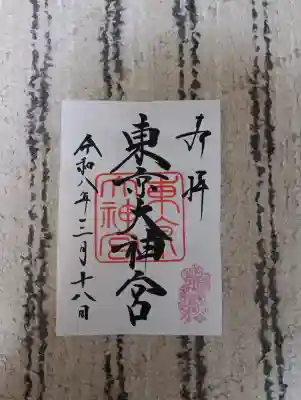 奉拝
東京大神宮
東京
大神宮
令和八年三月十八日